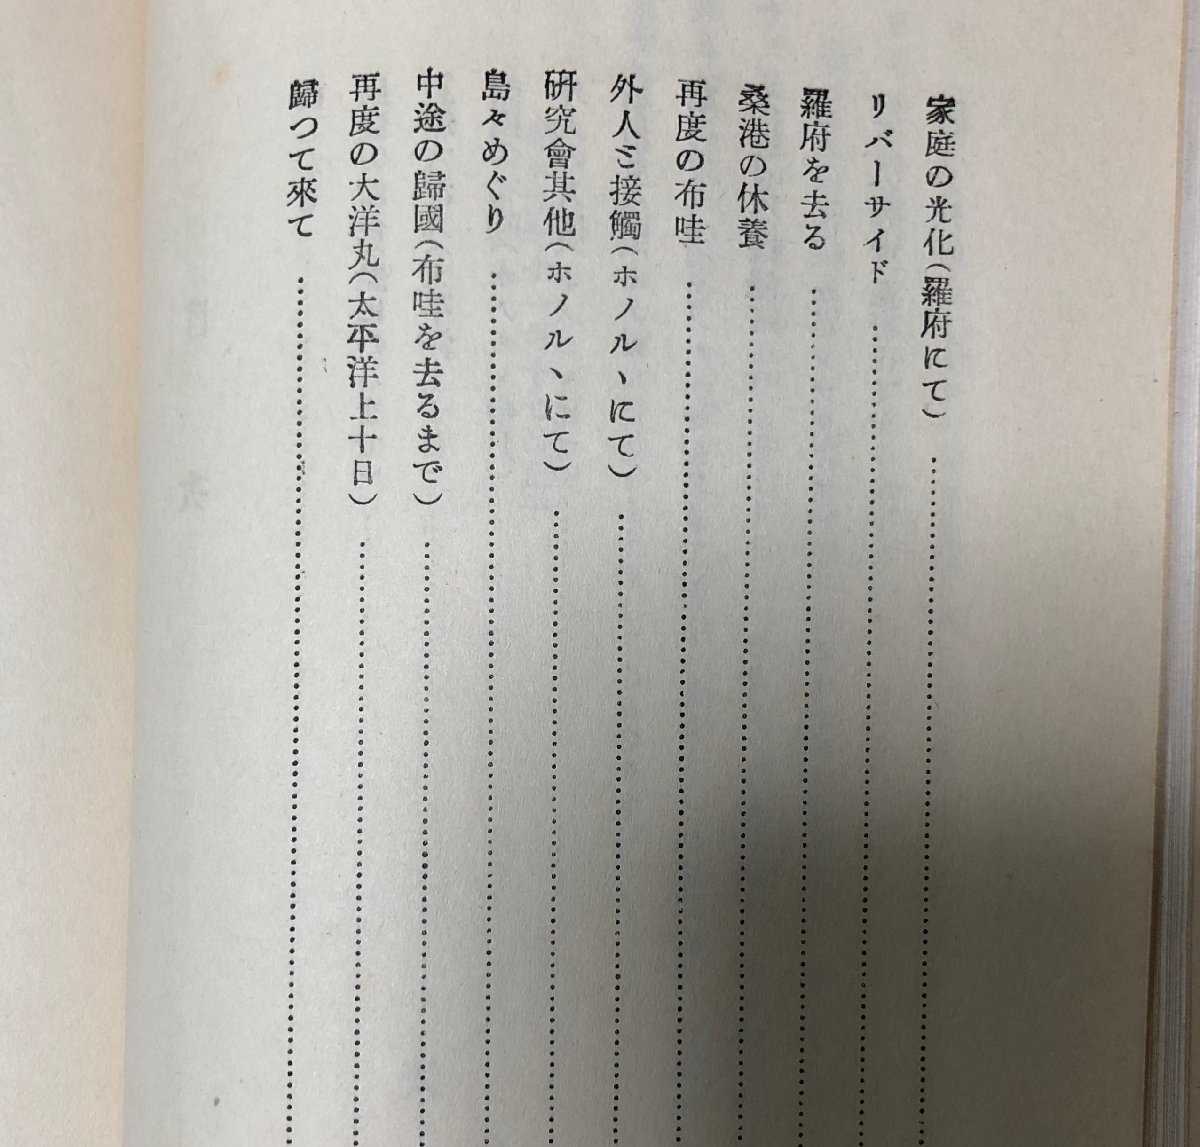 家庭の光化(羅府にて)
リバーサイド
羅府を去る
桑港の休養
再度の布哇
外人ミ接觸(ホノルヽにて)
研究會其他(ホノルヽにて)
島々めぐり
中途の歸國(布哇を去るまで)
再度の大洋丸(太平洋上十日)
歸つて來て